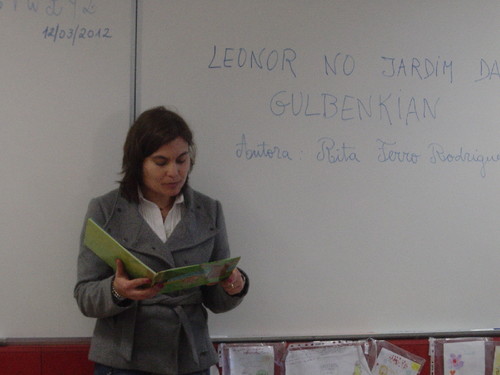 12/03/2012
LEONOR NO JARDIM DA
GULBENKIAN
Autora: Rita Ferro Rodrigue